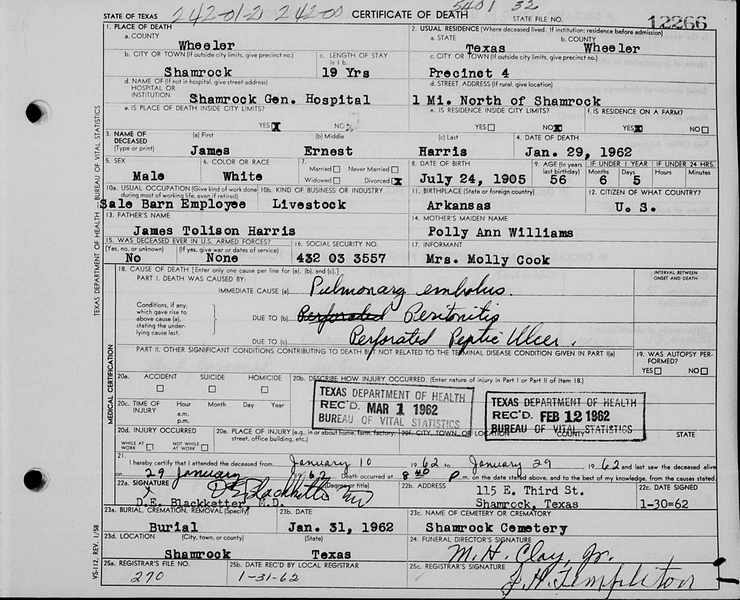 24201-2 24200 5401 32
STATE OF TEXAS CERTIFICATE OF DEATH STATE FILE NO. 12266
1. PLACE OF DEATH 2. USUAL RESIDENCE (Where deceased lived. If institution: residence before admission)
a. COUNTY a. STATE b. COUNTY
Wheeler Texas Wheeler
b. CITY OR TOWN (If outside city limits, give precinct no.) c. LENGTH OF STAY c. CITY OR TOWN (If outside city limits, give precinct no.)
Shamrock 19 Yrs Precinct 4
d. NAME OF (If not in hospital, give street address) d. STREET ADDRESS (If rural, give location)
HOSPITAL OR
INSTITUTION Shamrock Gen. Hospital 1 Mi. North of Shamrock
e. IS PLACE OF DEATH INSIDE CITY LIMITS? e. IS RESIDENCE INSIDE CITY LIMITS? f. IS RESIDENCE ON A FARM?
YES NO YES NO YES NO
3. NAME OF (a) First (b) Middle (c) Last 4. DATE OF DEATH
DECEASED
(Type or print) James Ernest Harris Jan. 29, 1962
5. SEX 6. COLOR OR RACE 7. Married Never Married 8. DATE OF BIRTH 9. AGE (In years last birthday) IF UNDER 1 YEAR IF UNDER 24 HRS.
Months Days Hours Minutes
Male White Widowed Divorced July 24, 1905 56 6 5
10a. USUAL OCCUPATION (Give kind of work done during most of working life, even if retired) 10b. KIND OF BUSINESS OR INDUSTRY 11. BIRTHPLACE (State or foreign country) 12. CITIZEN OF WHAT COUNTRY?
Sale Barn Employee Livestock Arkansas U. S.
13. FATHER'S NAME 14. MOTHER'S MAIDEN NAME
James Tolison Harris Polly Ann Williams
15. WAS DECEASED EVER IN U.S. ARMED FORCES? 16. SOCIAL SECURITY NO. 17. INFORMANT
(Yes, no, or unknown) (If yes, give war or dates of service)
No None 432 03 3557 Mrs. Molly Cook
18. CAUSE OF DEATH [Enter only one cause per line for (a), (b), and (c).] INTERVAL BETWEEN
ONSET AND DEATH
PART I. DEATH WAS CAUSED BY:
IMMEDIATE CAUSE (a) Pulmonary embolus.
Conditions, if any,
which gave rise to
above cause (a), DUE TO (b) Perforated Peritonitis
stating the under-
lying cause last. DUE TO (c) Perforated Peptic Ulcer.
PART II. OTHER SIGNIFICANT CONDITIONS CONTRIBUTING TO DEATH BUT NOT RELATED TO THE TERMINAL DISEASE CONDITION GIVEN IN PART I(a) 19. WAS AUTOPSY PER-
FORMED?
YES NO
20a. ACCIDENT SUICIDE HOMICIDE 20b. DESCRIBE HOW INJURY OCCURRED. (Enter nature of injury in Part I or Part II of item 18.)
20c. TIME OF INJURY Hour Month Day Year
a.m.
p.m.
TEXAS DEPARTMENT OF HEALTH
REC'D. MAR 1 1962
BUREAU OF VITAL STATISTICS
TEXAS DEPARTMENT OF HEALTH
REC'D. FEB 12 1962
BUREAU OF VITAL STATISTICS
20d. INJURY OCCURRED 20e. PLACE OF INJURY (e.g., in or about home, farm, factory, street, office building, etc.) 20f. CITY, TOWN, OR LOCATION COUNTY STATE
WHILE AT WORK NOT WHILE AT WORK
21. I hereby certify that I attended the deceased from January 10 1962 to January 29 1962 and last saw the deceased alive
on 29 January 1962 Death occurred at 8 40 P m. on the date stated above, and to the best of my knowledge, from the causes stated.
22a. SIGNATURE (Degree or title) 22b. ADDRESS 22c. DATE SIGNED
D.E. Blackketter, M.D. 115 E. Third St.
Shamrock, Texas 1-30-62
23a. BURIAL, CREMATION, REMOVAL (Specify) 23b. DATE 23c. NAME OF CEMETERY OR CREMATORY
Burial Jan. 31, 1962 Shamrock Cemetery
23d. LOCATION (City, town, or county) (State) 24. FUNERAL DIRECTOR'S SIGNATURE
Shamrock Texas M. H. Clay, Jr.
25a. REGISTRAR'S FILE NO. 25b. DATE REC'D BY LOCAL REGISTRAR 25c. REGISTRAR'S SIGNATURE
270 1-31-62 Templeton
TEXAS DEPARTMENT OF HEALTH BUREAU OF VITAL STATISTICS
MEDICAL CERTIFICATION
VS-112 REV. 1/58